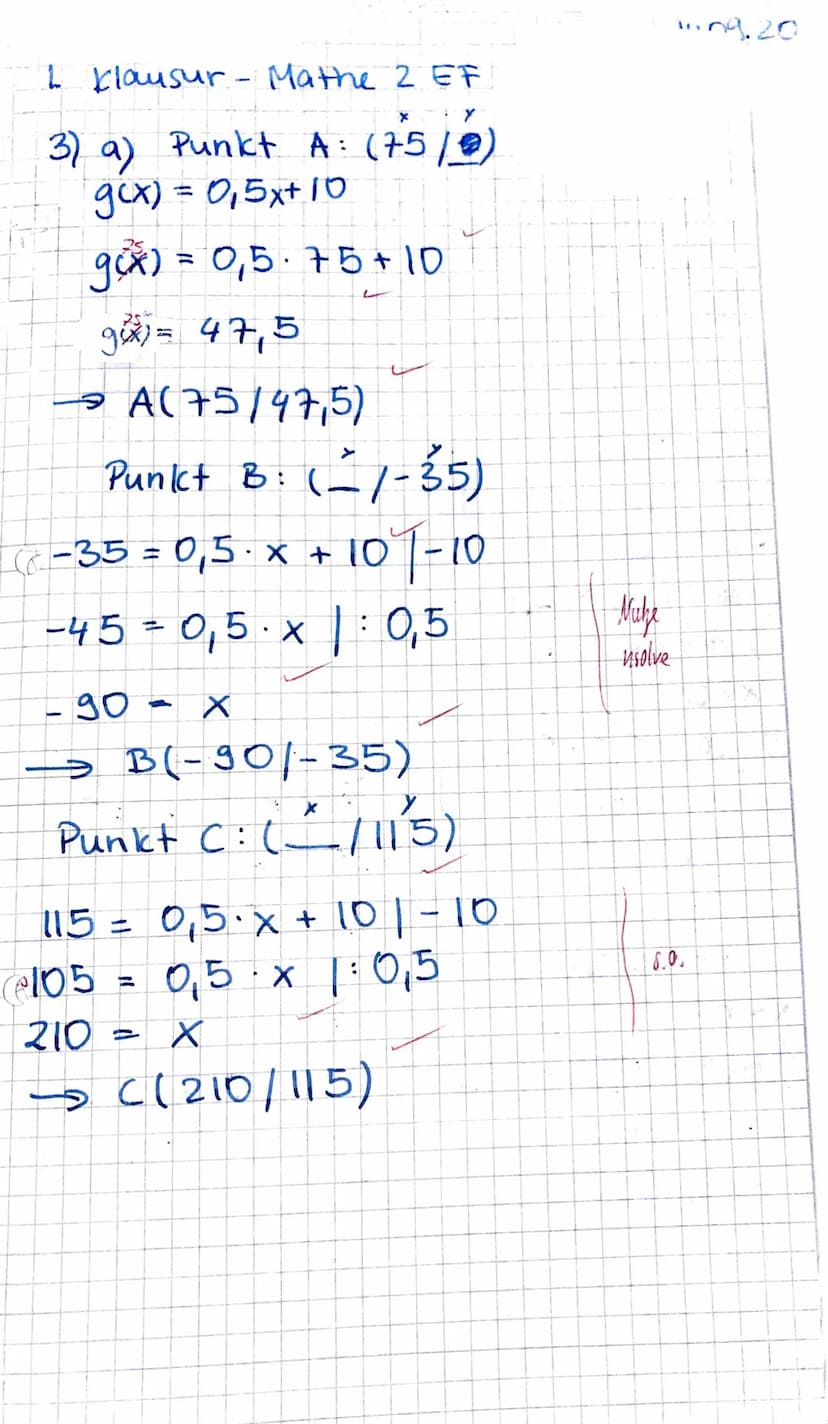 09.20
1. Klausur - Mathe 2 EF
x y
3) a) Punkt A: (75/_)
g(x) = 0,5x+10
g(75) = 0,5 · 75 + 10
g(75) = 47,5
→ A(75/47,5)
x y
Punkt B: (_/-35)
-35 = 0,5 · x + 10 |-10
-45 = 0,5 · x | : 0,5
Nutze
nsolve
-90 = x
→ B(-90/-35)
x y
Punkt C: (_/115)
115 = 0,5 · x + 10 | -10
105 = 0,5 · x | : 0,5
s.o.
210 = x
→ C(210/115)